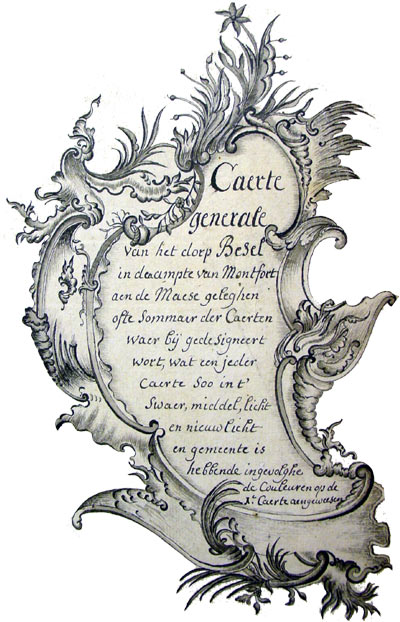 Caerte
generale
van het dorp Besel
in de ampte van Montfort
aen de Maese geleghen
ofte Sommair der Caerten
waer bij gedesigneert
wort, wat een jeder
Caerte Soo int'
Swaer, middel, licht
en nieuw licht
en gemeente is
hebbende ingevolghe
de Couleuren op de
1e Caerte aengewesen